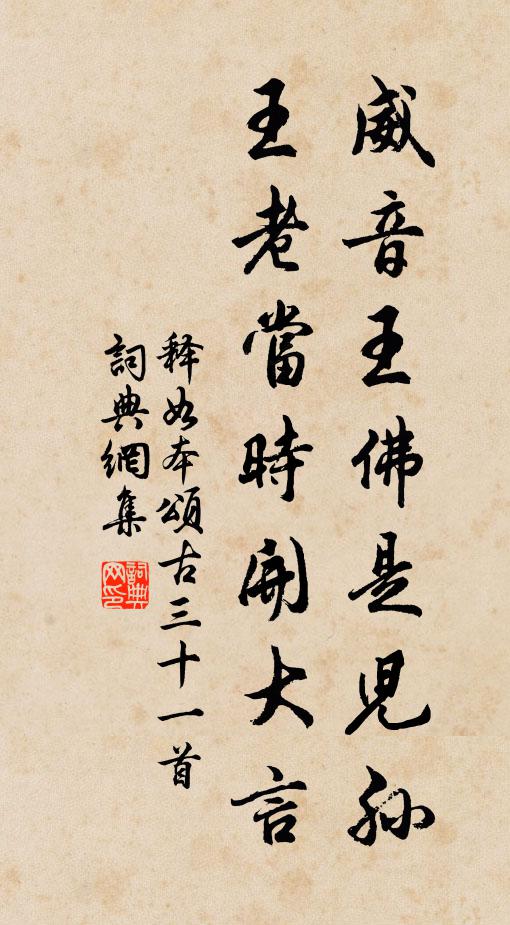 威音王佛是兒孫
王老當時開大言
释如本頌古三十一首
詞典網集
詞典网印